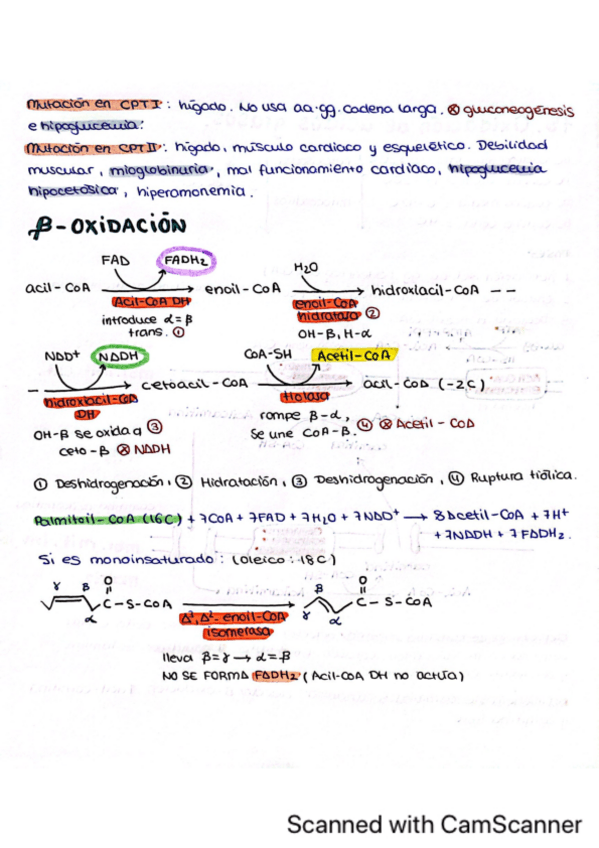 Mutación en CPT I: hígado. No usa aa.gg. cadena larga. ⊗ gluconeogénesis
e hipoglucemia.
Mutación en CPT II: hígado, músculo cardiaco y esquelético. Debilidad
muscular, mioglobinuria, mal funcionamiento cardiaco, hipoglucemia
hipocetósica, hiperamonemia.
β-OXIDACIÓN
FAD FADH2 H2O
acil-CoA → enoil-CoA → hidroxiacil-CoA --
Acil-CoA DH enoil-CoA
hidratasa ②
introduce α=β
trans. ① OH-β, H-α
NAD+ NADH CoA-SH Acetil-CoA
- → cetoacil-CoA → acil-CoA (-2C)
hidroxiacil-CoA
DH tiolasa
OH-β se oxida a ③ rompe β-α,
ceto-β ⊗ NADH se une CoA-β. ④ ⊗ Acetil-CoA
① Deshidrogenación, ② Hidratación, ③ Deshidrogenación, ④ Ruptura tiólica.
Palmitoil-CoA (16C) + 7CoA + 7FAD + 7H2O + 7NAD+ → 8Acetil-CoA + 7H+
+ 7NADH + 7FADH2.
Si es monoinsaturado: (oleico: 18C)
γ β O β O
C-S-CoA → C-S-CoA
α γ α
Δ3, Δ2-enoil-CoA
isomerasa
lleva β=γ → α=β
NO SE FORMA FADH2 (Acil-CoA DH no actúa)
Scanned with CamScanner